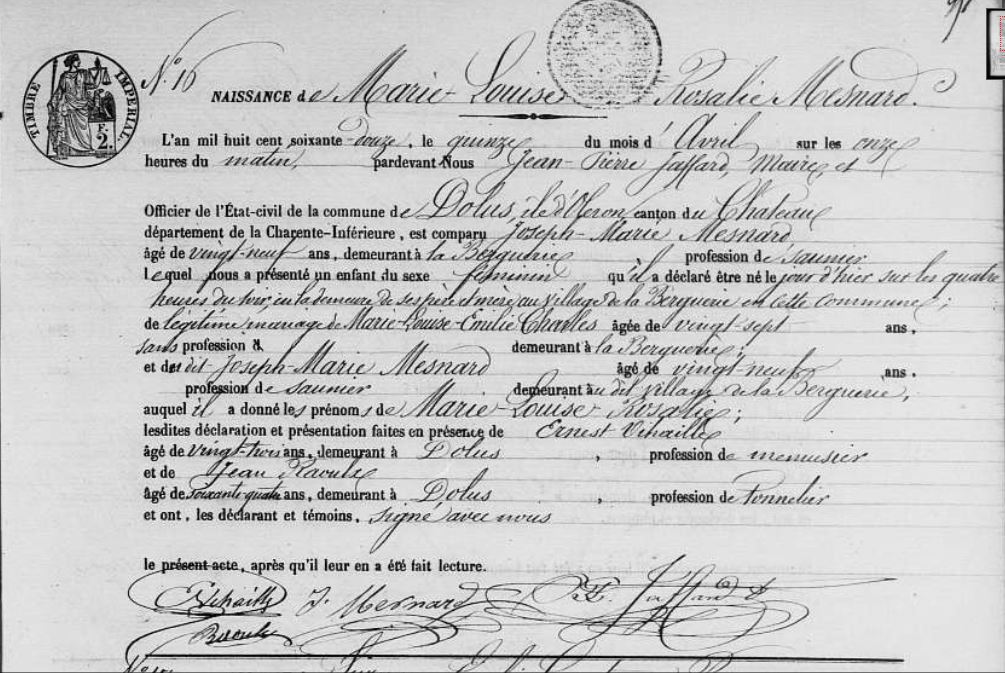 N.º 16
TIMBRE IMPERIAL.
F. 2.
NAISSANCE de Marie-Louise Rosalie Mesnard.
L'an mil huit cent soixante-douze, le quinze du mois d'Avril sur les onze
heures du matin, pardevant-Nous Jean-Pierre Jaffard, Maire et
Officier de l'État-civil de la commune de Dolus, île d'Oleron, canton du Chateau
département de la Charente-Inférieure, est comparu Joseph-Marie Mesnard
âgé de vingt-neuf ans, demeurant à la Berguerie profession de saunier
lequel nous a présenté un enfant du sexe féminin qu'il a déclaré être né le jour d'hier sur les quatre
heures du soir, en la demeure de ses père et mère au village de la Berguerie en cette commune;
de légitime mariage de Marie-Louise-Emilie Charles âgée de vingt-sept ans,
sans profession & demeurant à la Berguerie;
et du dit Joseph-Marie Mesnard âgé de vingt-neuf ans,
profession de saunier demeurant au dit village de la Berguerie,
auquel il a donné les prénoms de Marie-Louise Rosalie;
lesdites déclaration et présentation faites en présence de Ernest
âgé de vingt-trois ans, demeurant à Dolus, profession de menuisier
et de Jean Raoulx
âgé de soixante-quatre ans, demeurant à Dolus, profession de Tonnelier
et ont, les déclarant et témoins, signé avec nous
le présent acte, après qu'il leur en a été fait lecture.
J. Mesnard Jaffard
Raoulx